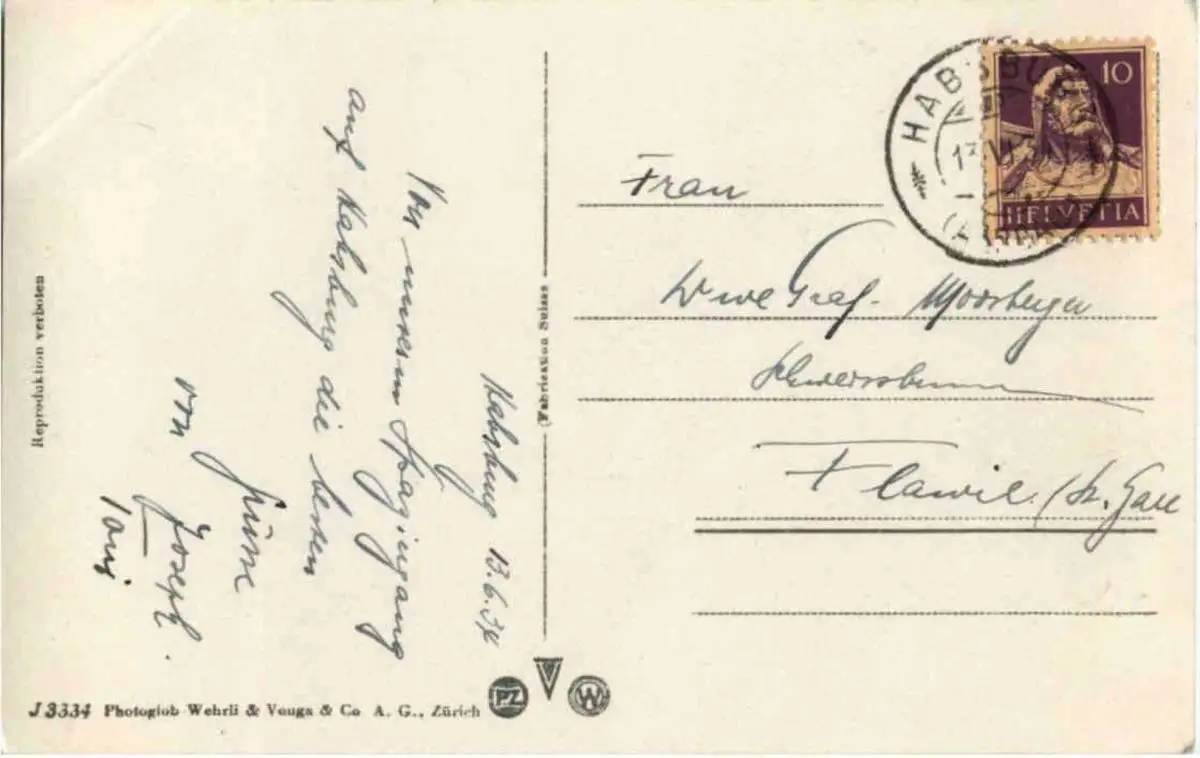 Habsburg 13.6.34
Von unserem Spaziergang
auf Habsburg die besten
Grüsse
von Joseph.
Toni
Reproduktion verboten
Fabrication Suisse
J 3334 Photoglob Wehrli & Vouga & Co A. G., Zürich
PZ
W
HABSBURG
10
HELVETIA
Frau
Wwe Graf - Moosberger
Flawil. (St. Gall